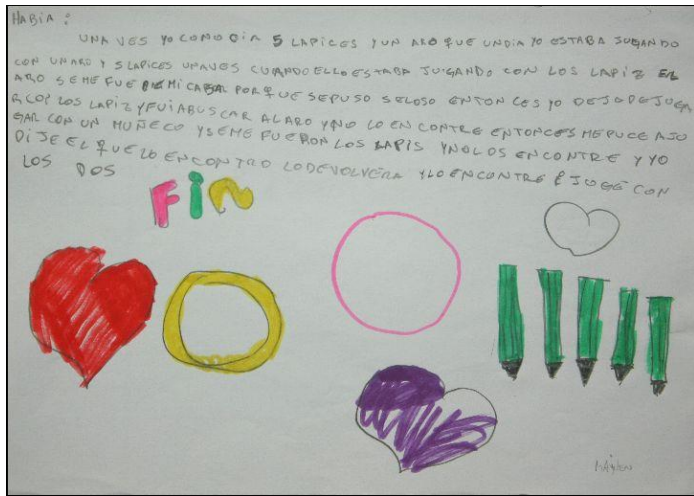 HABIA:
UNA VES YO CONOCIA 5 LAPICES Y UN ARO QUE UN DIA YO ESTABA JUGANDO
CON UN ARO Y 5 LAPICES UNA VES CUANDO ELLO ESTABA JUGANDO CON LOS LAPIZ EL
ARO SE ME FUE DE MI CASA PORQUE SE PUSO SELOSO ENTONCES YO DEJO DE JUGA
R CON LOS LAPIZ Y FUI A BUSCAR AL ARO Y NO LO ENCONTRE ENTONCES ME PUCE A JU
GAR CON UN MUÑECO Y SE ME FUERON LOS LAPIS Y NO LOS ENCONTRE Y YO
DIJE EL QUE LO ENCONTRO LO DEVOLVERA Y LO ENCONTRE JOGÉ CON
LOS DOS
FiN
MAILEN